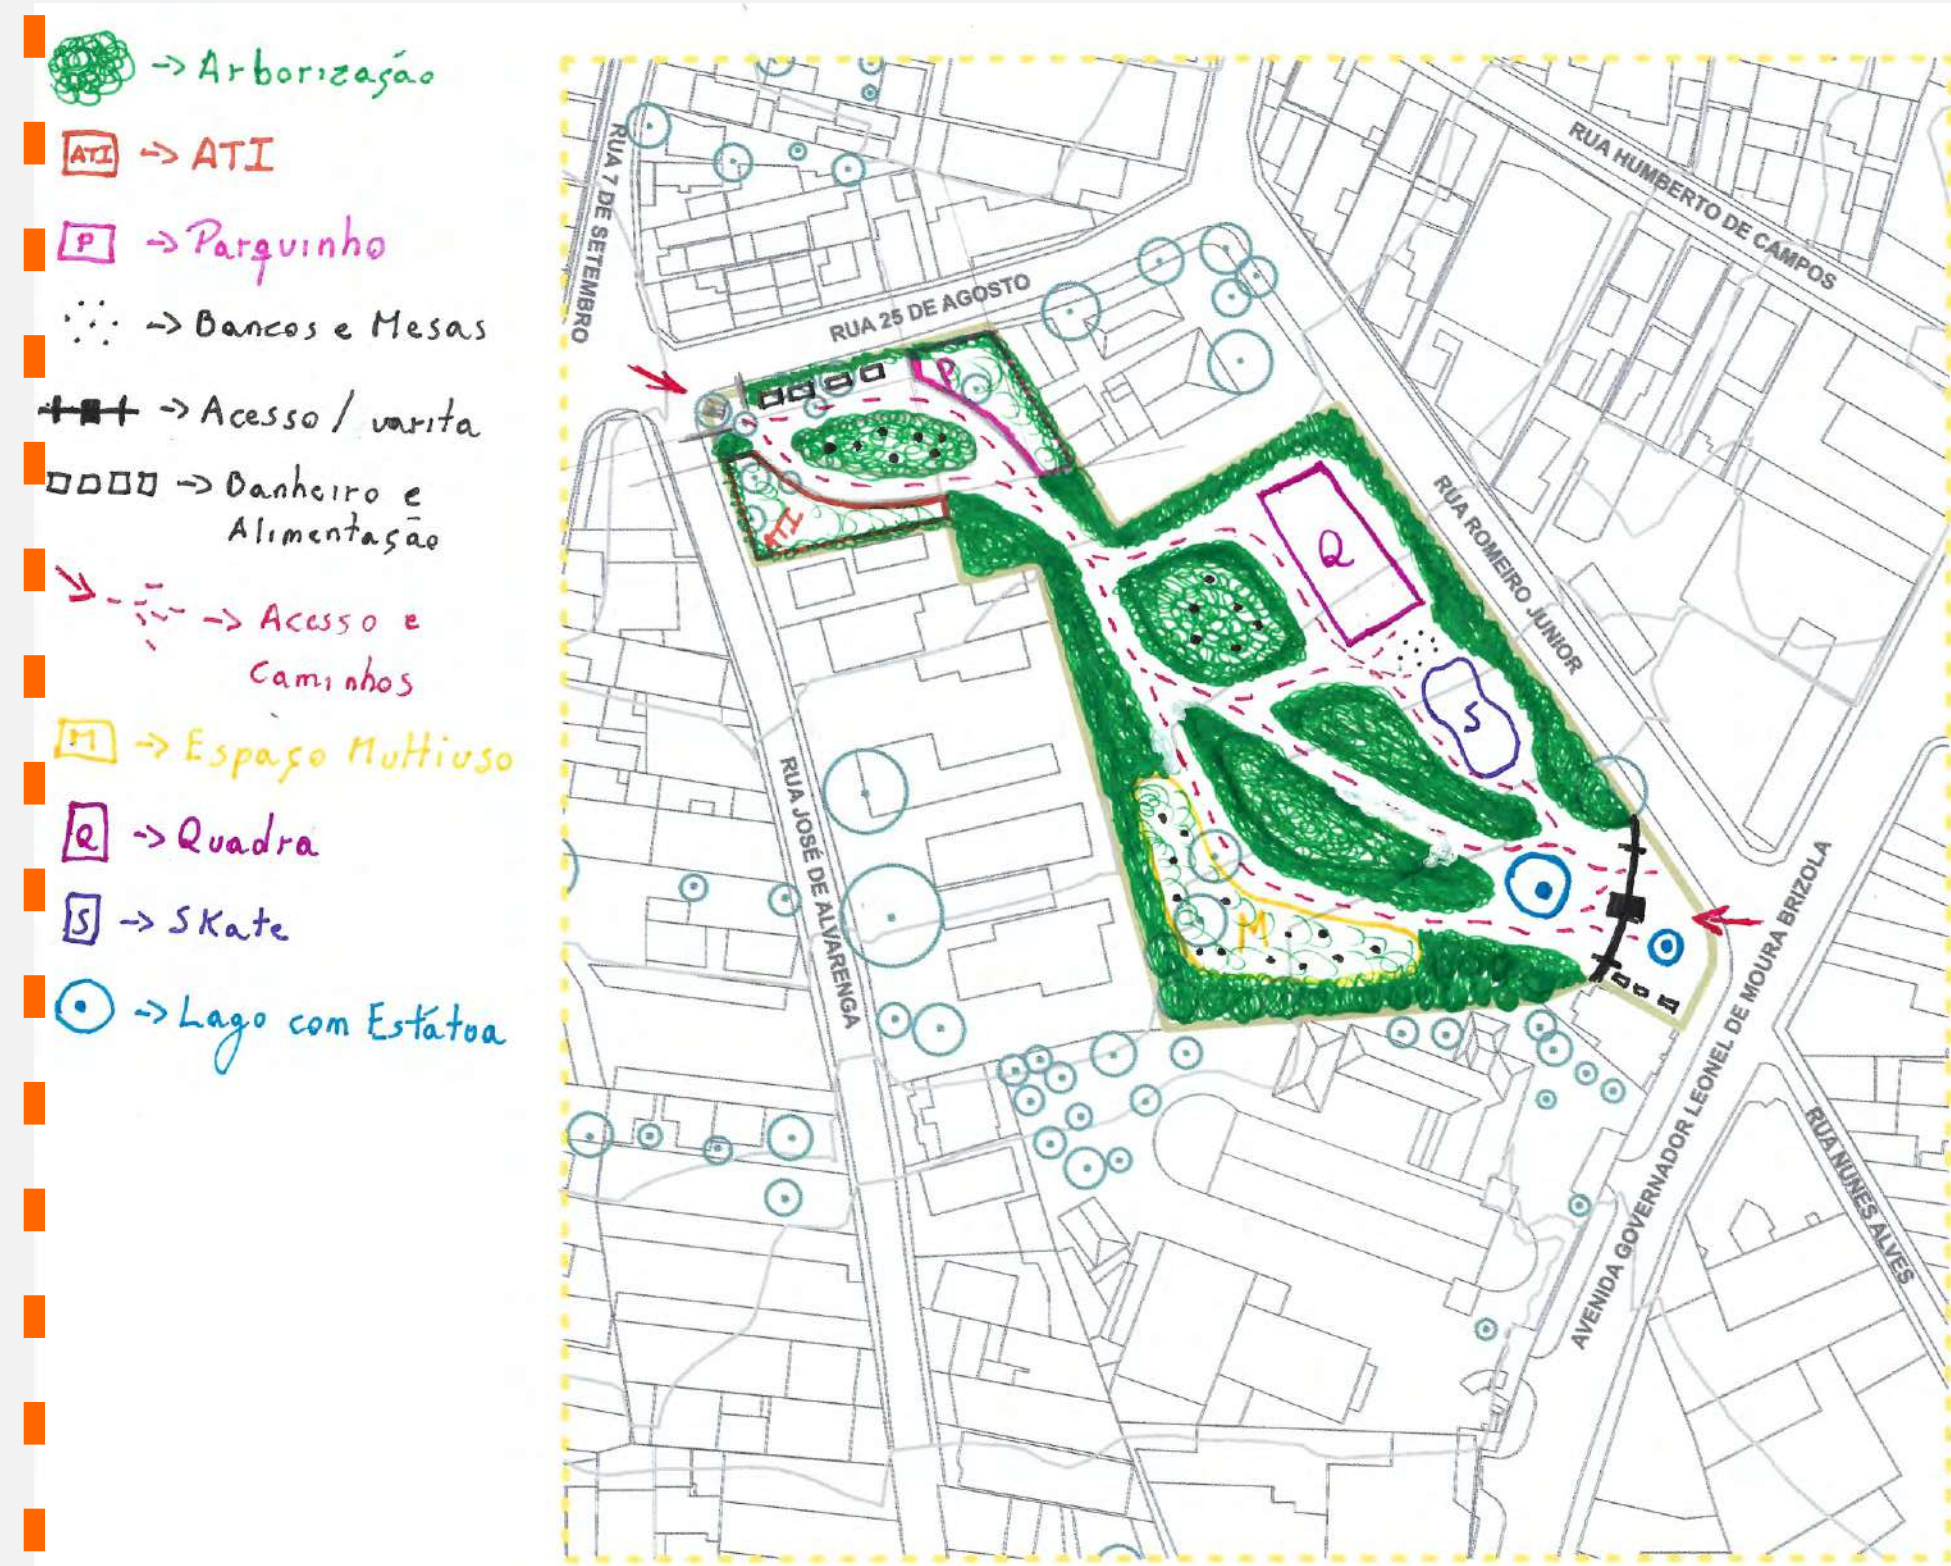 -> Arborização
ATI -> ATI
P -> Parquinho
-> Bancos e Mesas
-> Acesso / varita
-> Banheiro e
Alimentação
-> Acesso e
Caminhos
M -> Espaço Multiuso
Q -> Quadra
S -> Skate
-> Lago com Estátua
RUA 7 DE SETEMBRO
RUA 25 DE AGOSTO
RUA HUMBERTO DE CAMPOS
P
ATI
Q
RUA ROMEIRO JUNIOR
S
M
RUA JOSÉ DE ALVARENGA
AVENIDA GOVERNADOR LEONEL DE MOURA BRIZOLA
RUA NUNES ALVES